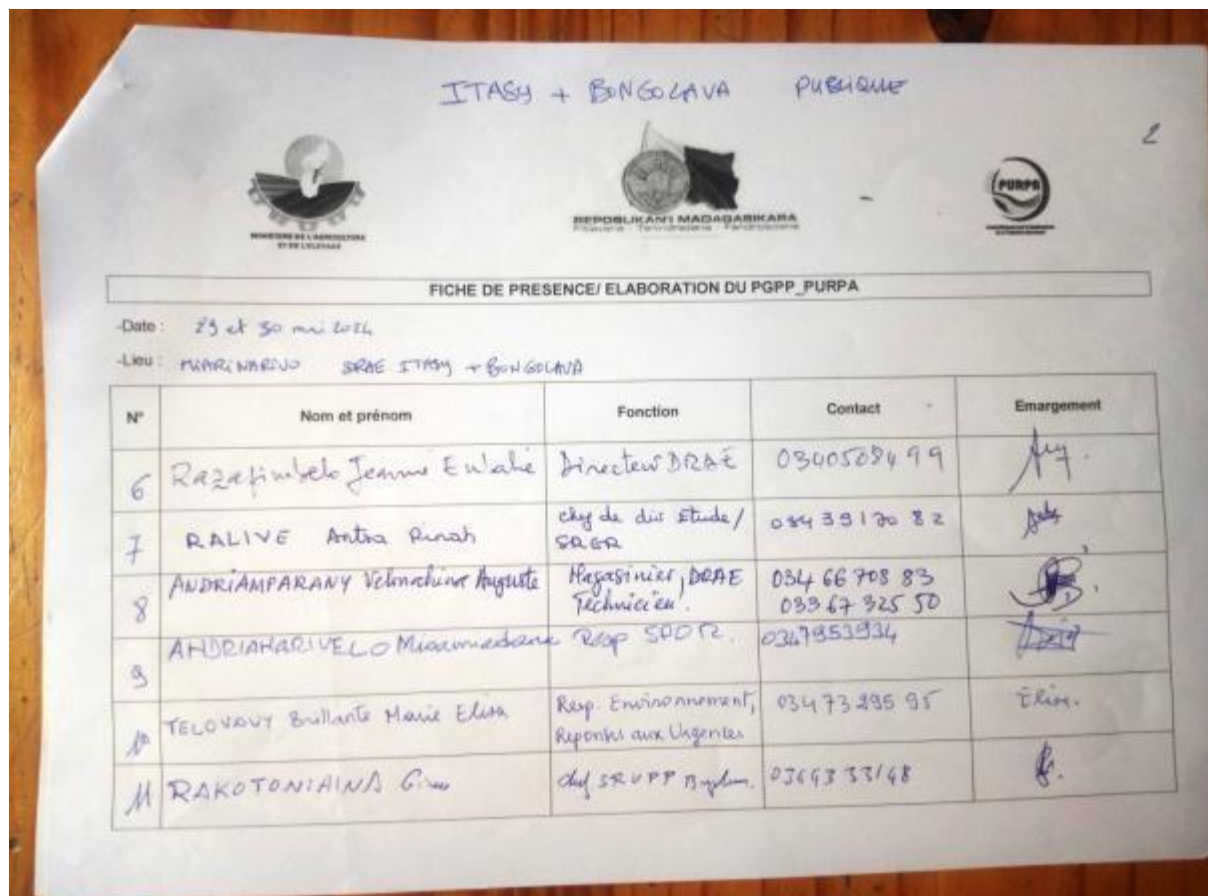 ITASY + BONGOLAVA PUBLIQUE
2
MINISTERE DE L'AGRICULTURE
ET DE L'ELEVAGE
REPOBLIKAN'I MADAGASIKARA
Fitiavana - Tanindrazana - Fandrosoana
PURPA
FICHE DE PRESENCE/ ELABORATION DU PGPP_PURPA
-Date : 29 et 30 mai 2024
-Lieu : MIARINARIVO DRAE ITASY + BONGOLAVA
N° Nom et prénom Fonction Contact Emargement
6 Razafimbelo Jeanne Eulalie Directeur DRAE 0340508499
7 RALIVE Antsa Rinah chef de div Etude/ 034 39 120 82
SRGR
8 ANDRIAMPARANY Auguste Magasinier, DRAE 034 66 708 83
Technicien. 033 67 325 50
9 ANDRIAHARIVELO Resp 0347953934
10 TELOVAVY Brillante Marie Elisa Resp. Environnement, 034 73 295 95 Elisa.
Reponses aux Urgences
11 RAKOTONIAINA chef SRUPP